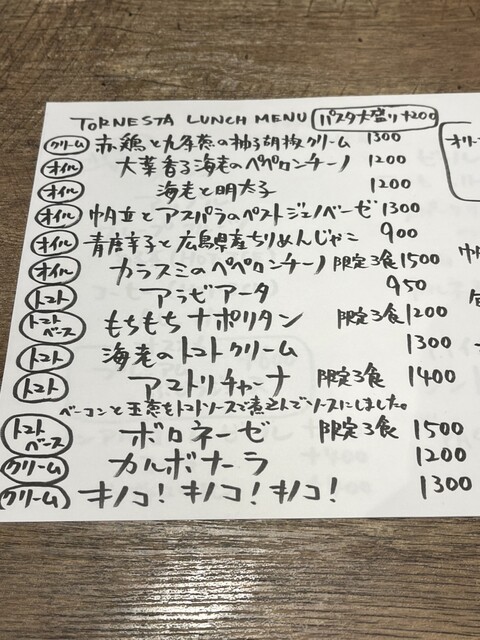 TORNESTA LUNCH MENU パスタ大盛り+200
クリーム 赤鶏と九条葱の柚子胡椒クリーム 1300
オイル 大葉香る海老のペペロンチーノ 1200
オイル 海老と明太子 1200
オイル 帆立とアスパラのペストジェノベーゼ 1300
オイル 青唐辛子と広島県産ちりめんじゃこ 900
オイル カラスミのペペロンチーノ 限定3食 1500
トマト アラビアータ 950
トマトベース もちもちナポリタン 限定3食 1200
トマト 海老のトマトクリーム 1300
トマト アマトリチャーナ 限定3食 1400
ベーコンと玉葱をトマトソースで煮込んでソースにしました。
トマトベース ボロネーゼ 限定3食 1500
クリーム カルボナーラ 1200
クリーム キノコ!キノコ!キノコ! 1300